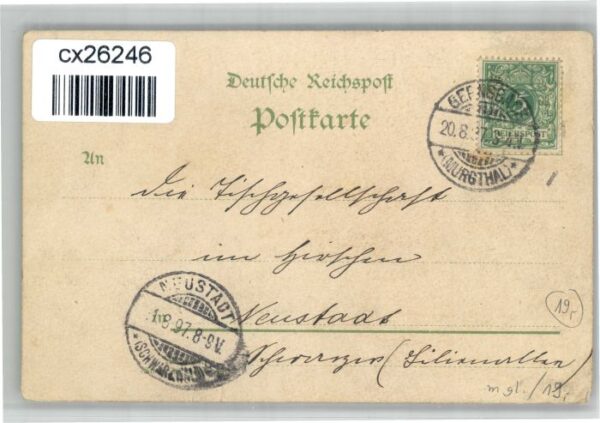 cx26246
Deutsche Reichspost
Postkarte
An
GERNSBACH
20.8.97.3-4N.
*(MURGTHAL)*
REICHSPOST
die Tischgesellschaft
im Hirschen
Neustadt
NEUSTADT
.8.97.8-9V.
*(SCHWARZWALD)*
19,-
m gl. / 19,-